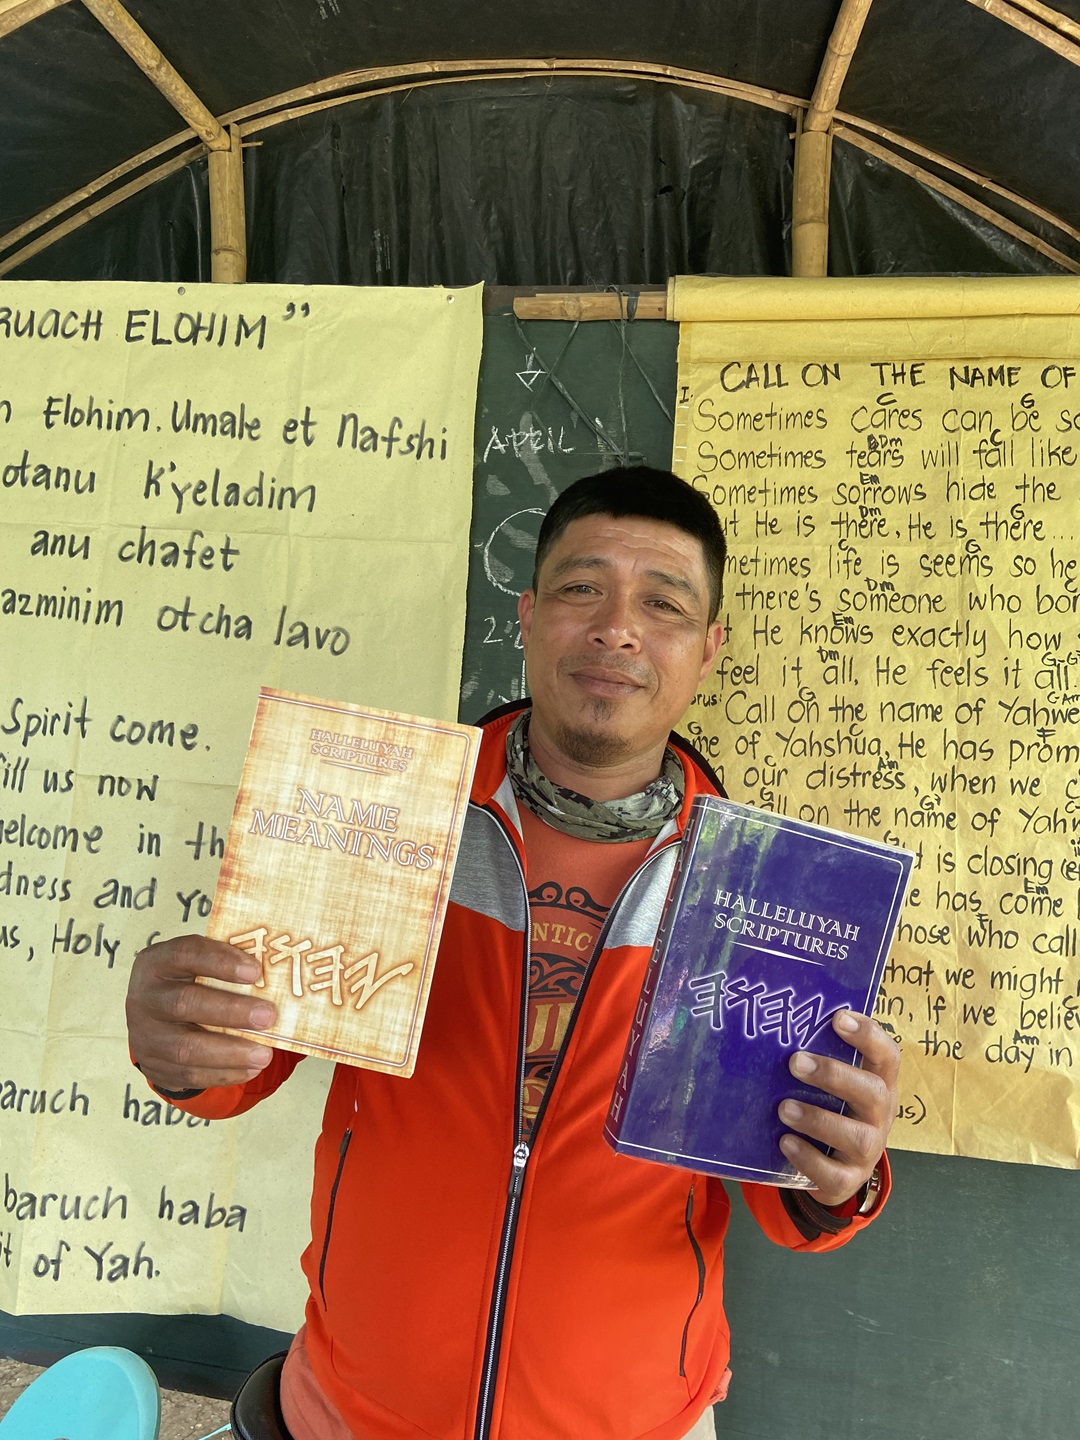 RUACH ELOHIM"
Elohim. Umale et Nafshi
otanu K'yeladim
anu chafet
azminim otcha lavo
Spirit come.
ill us now
elcome in th
dness and yo
us, Holy
aruch haba
baruch haba
it of Yah.
APRIL
I.
CALL ON THE NAME OF
C G
Sometimes cares can be so
BbDm C
Sometimes tears will fall like
Em
Sometimes sorrows hide the
Dm G
ut He is there, He is there...
C G
metimes life is seems so he
Dm
there's someone who bor
Em
He knows exactly how
Dm G-G7
feel it all, He feels it all.
rus: G C-Am
Call on the name of Yahwe
G F
me of Yahshua, He has prom
Am
in our distress, when we c
G7
call on the name of Yahw
G
t is closing
Em
e has come
F
hose who call
that we might
in, If we believ
Am
the day in
us)
HALLELUYAH
SCRIPTURES
NAME
MEANINGS
𐤉𐤄𐤅𐤄
HALLELUYAH
SCRIPTURES
𐤉𐤄𐤅𐤄
NTIC